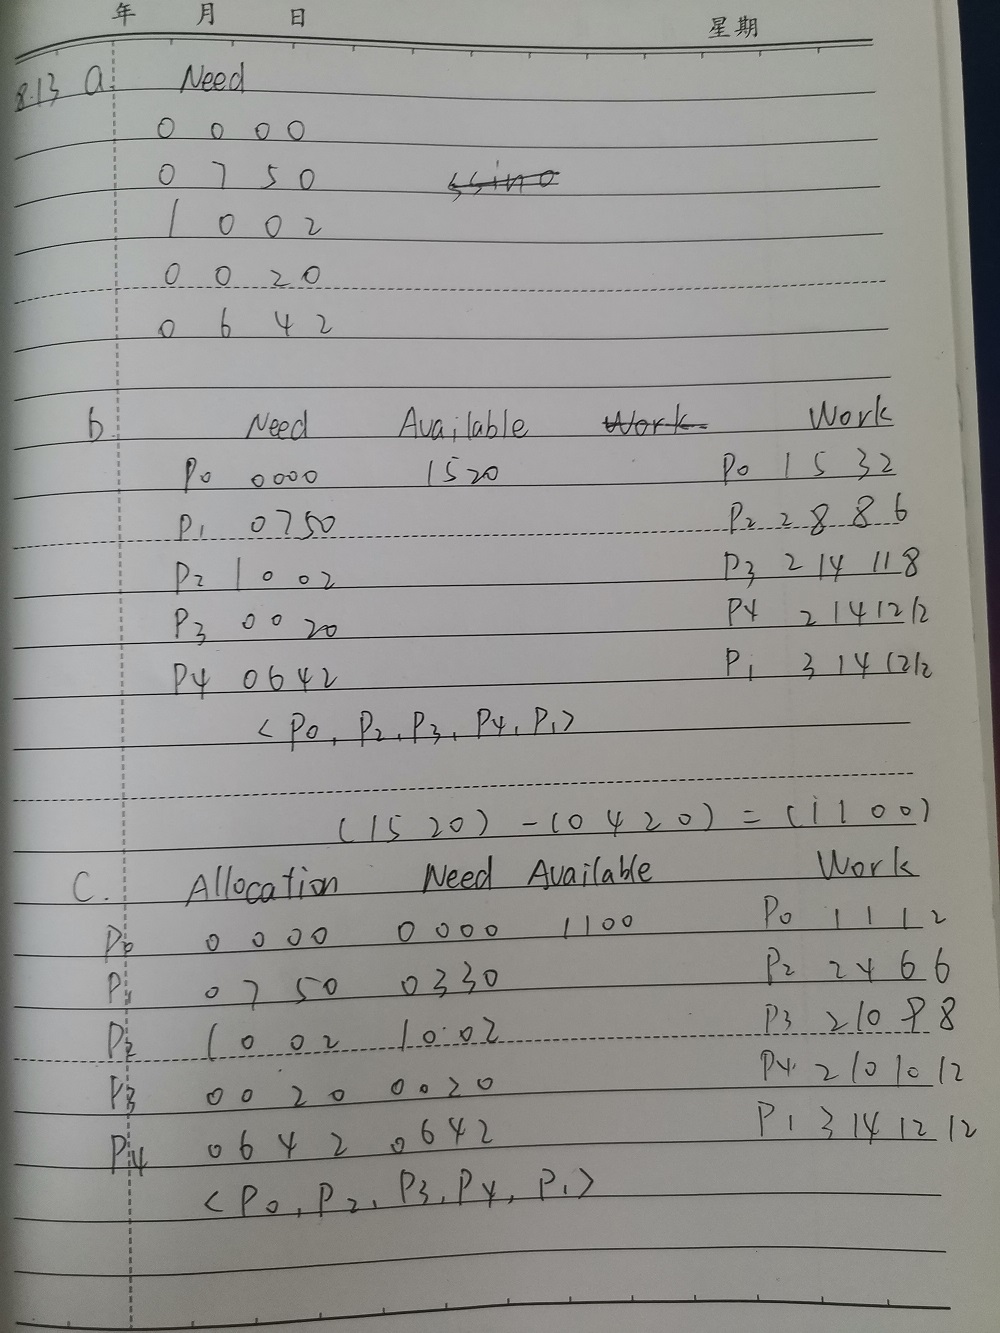 年 月 日 星期
8.13 a. Need
0 0 0 0
0 7 5 0
1 0 0 2
0 0 2 0
0 6 4 2
b. Need Available Work Work
P0 0000 1520 P0 1 5 3 2
P1 0750 P2 2 8 8 6
P2 1002 P3 2 14 11 8
P3 0020 P4 2 14 12 12
P4 0642 P1 3 14 12 12
<P0, P2, P3, P4, P1>
(1520) - (0420) = (1100)
C. Allocation Need Available Work
P0 0 0 0 0 0 0 0 0 1100 P0 1 1 1 2
P1 0 7 5 0 0330 P2 2 4 6 6
P2 1 0 0 2 1002 P3 2 10 9 8
P3 0 0 2 0 0020 P4 2 10 10 12
P4 0 6 4 2 0642 P1 3 14 12 12
<P0, P2, P3, P4, P1>